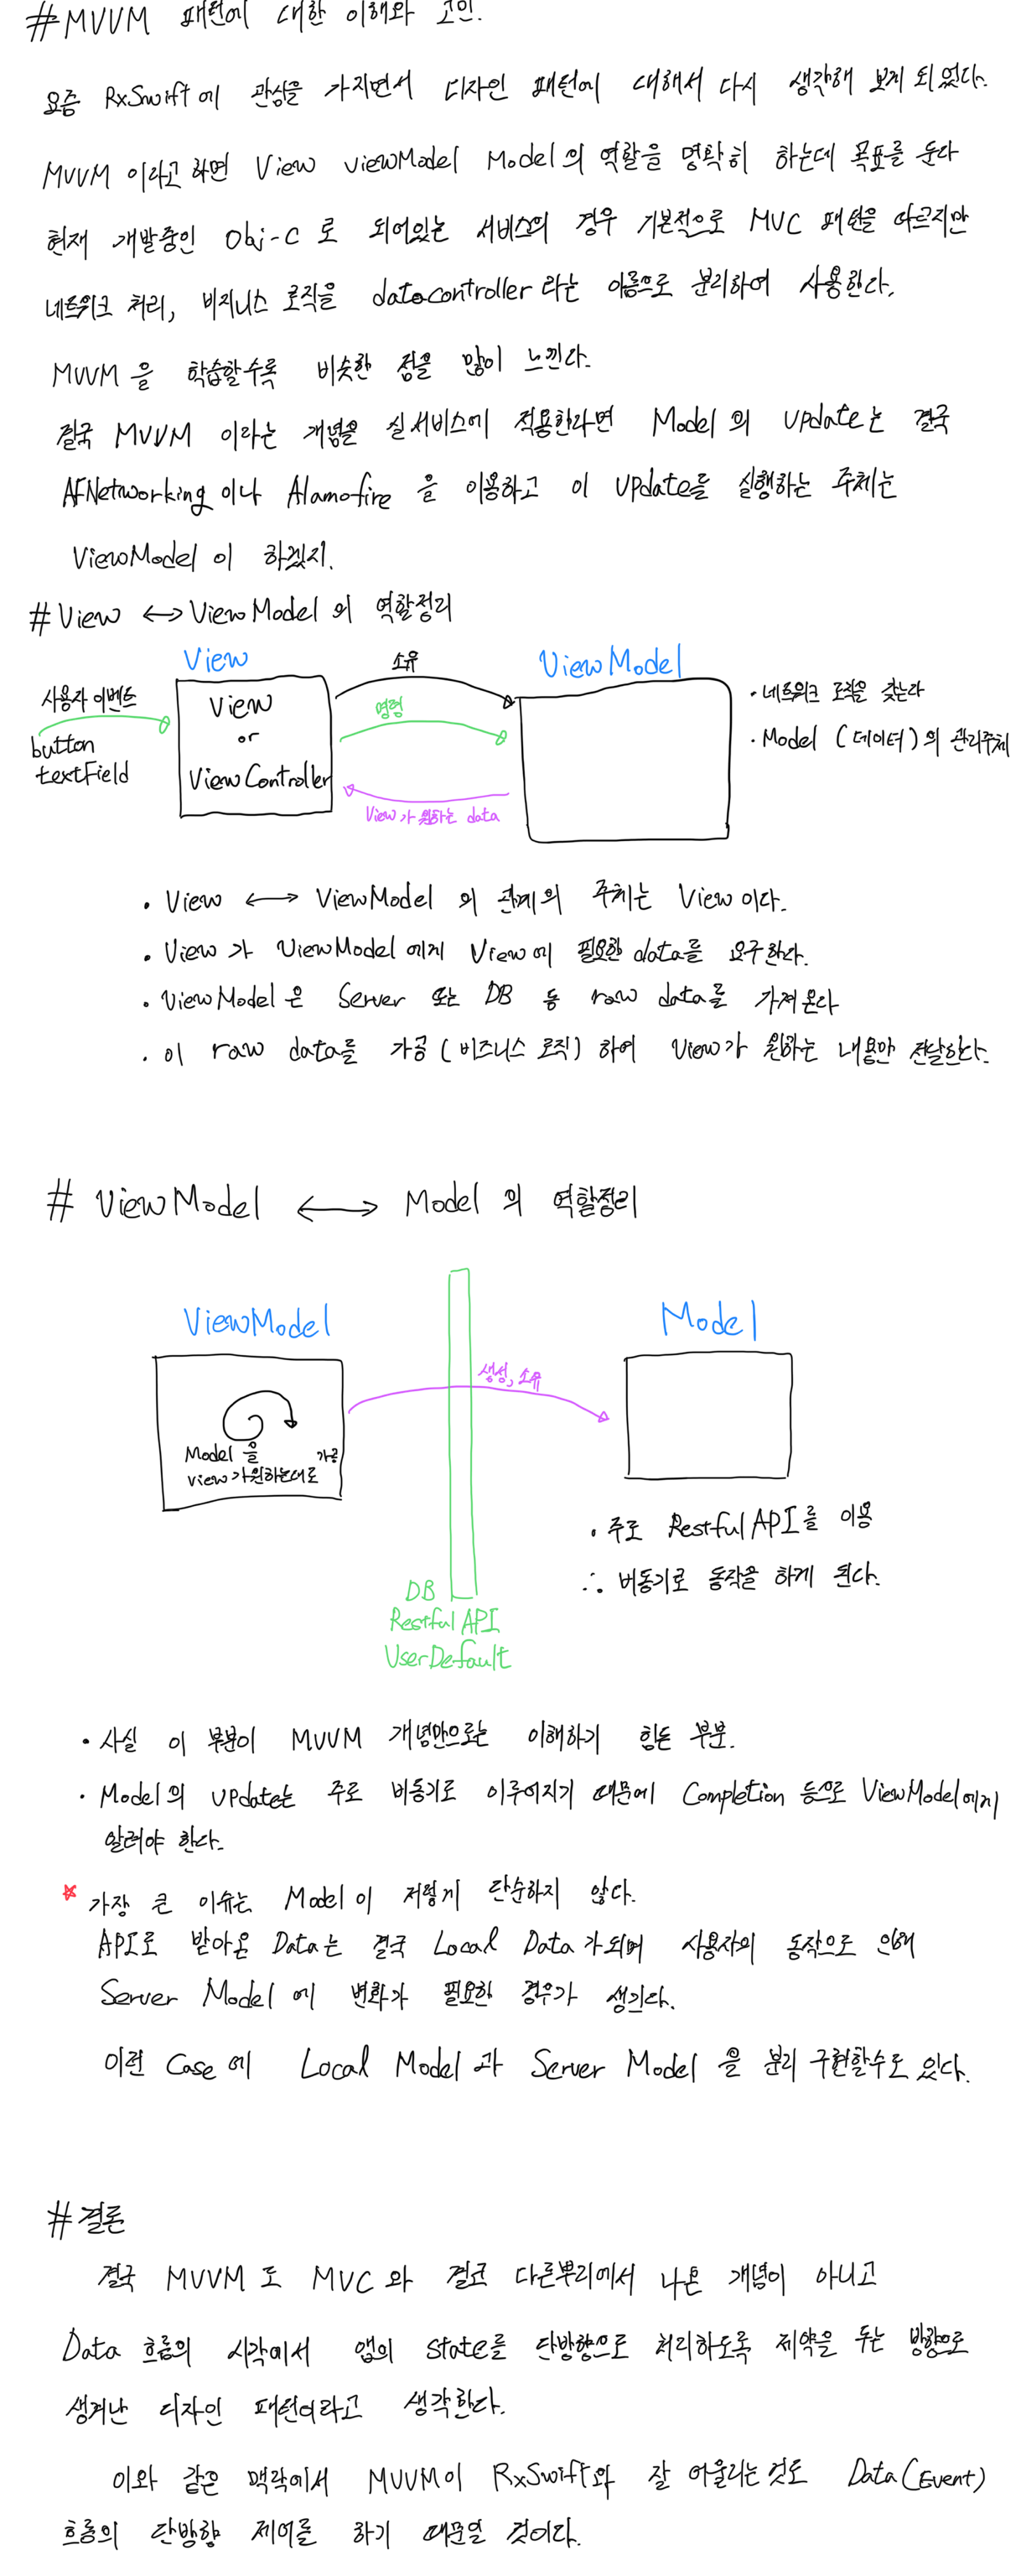 # MVVM 패턴에 대한 이해와 고민.
요즘 RxSwift에 관심을 가지면서 디자인 패턴에 대해서 다시 생각해 보게 되었다.
MVVM 이라고 하면 View viewModel Model의 역할을 명확히 하는데 목표를 둔다
현재 개발중인 Obj-C 로 되어있는 서비스의 경우 기본적으로 MVC 패턴을 따르지만
네트워크 처리, 비지니스 로직을 datacontroller 라는 이름으로 분리하여 사용한다.
MVVM 을 학습할수록 비슷한 점을 많이 느낀다.
결국 MVVM 이라는 개념을 실 서비스에 적용한다면 Model 의 update는 결국
AFNetworking 이나 Alamofire 을 이용하고 이 update를 실행하는 주체는
ViewModel 이 하겠지.
# View ↔ ViewModel 의 역할정리
View
소유
ViewModel
사용자 이벤트
button
textField
View
or
ViewController
명령
View가 원하는 data
· 네트워크 로직을 갖는다
· Model (데이터)의 관리주체
· View ↔ ViewModel 의 관계의 주체는 View이다.
· View가 ViewModel에게 View에 필요한 data를 요구한다.
· ViewModel은 Server 또는 DB 등 raw data를 가져온다
· 이 raw data를 가공(비즈니스 로직) 하여 View가 원하는 내용만 전달한다.
# ViewModel ↔ Model 의 역할정리
ViewModel
Model
생성, 소유
Model 을 가공
view가원하는대로
· 주로 Restful API를 이용
∴ 비동기로 동작을 하게 된다.
DB
Restful API
UserDefault
· 사실 이 부분이 MVVM 개념만으로는 이해하기 힘든 부분.
· Model의 update는 주로 비동기로 이루어지기 때문에 Completion 등으로 ViewModel에게
알려야 한다.
* 가장 큰 이슈는 Model이 저렇게 단순하지 않다.
API로 받아온 Data는 결국 Local Data가 되며 사용자의 동작으로 인해
Server Model 에 변화가 필요한 경우가 생긴다.
이런 Case에 Local Model 과 Server Model 을 분리 구현할수도 있다.
# 결론
결국 MVVM 도 MVC 와 결코 다른뿌리에서 나온 개념이 아니고
Data 흐름의 시각에서 앱의 state를 단방향으로 처리하도록 제약을 두는 방향으로
생겨난 디자인 패턴이라고 생각한다.
이와 같은 맥락에서 MVVM이 RxSwift와 잘 어울리는것도 Data(Event)
흐름의 단방향 제어를 하기 때문일 것이다.